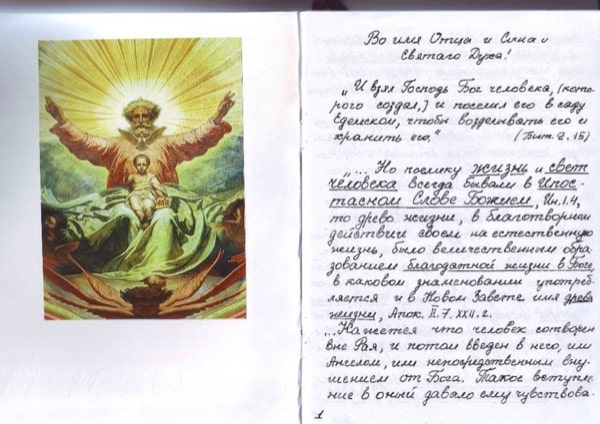 Во имя Отца и Сына и
Святаго Духа!
„И взял Господь Бог человека, (кото-
рого создал,) и поселил его в саду
Едемском, чтобы возделывать его и
хранить его." (Быт. 2. 15)
„... Но поелику жизнь и свет
человека всегда бывали в Ипос-
тасном Слове Божием, Ин. 1.4,
то древо жизни, в благотворном
действии своем на естественную
жизнь, было величественным обра-
зованием благодатной жизни в Боге,
в каковом знаменовании употреб-
ляется и в Новом Завете имя древа
жизни, Апок. II. 7. XXII. 2.
...Кажется что человек сотворен
вне Рая, и потом введен в него, или
Ангелом, или непосредственным вну-
шением от Бога. Такое вступле-
ние в оный давало ему чувствова-
1